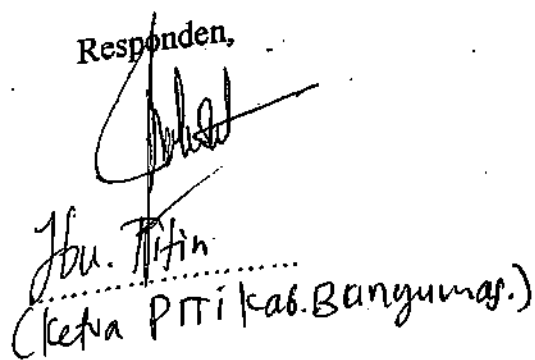 Responden,
Ibu. Titin
(Ketua PITI Kab. Banyumas.)